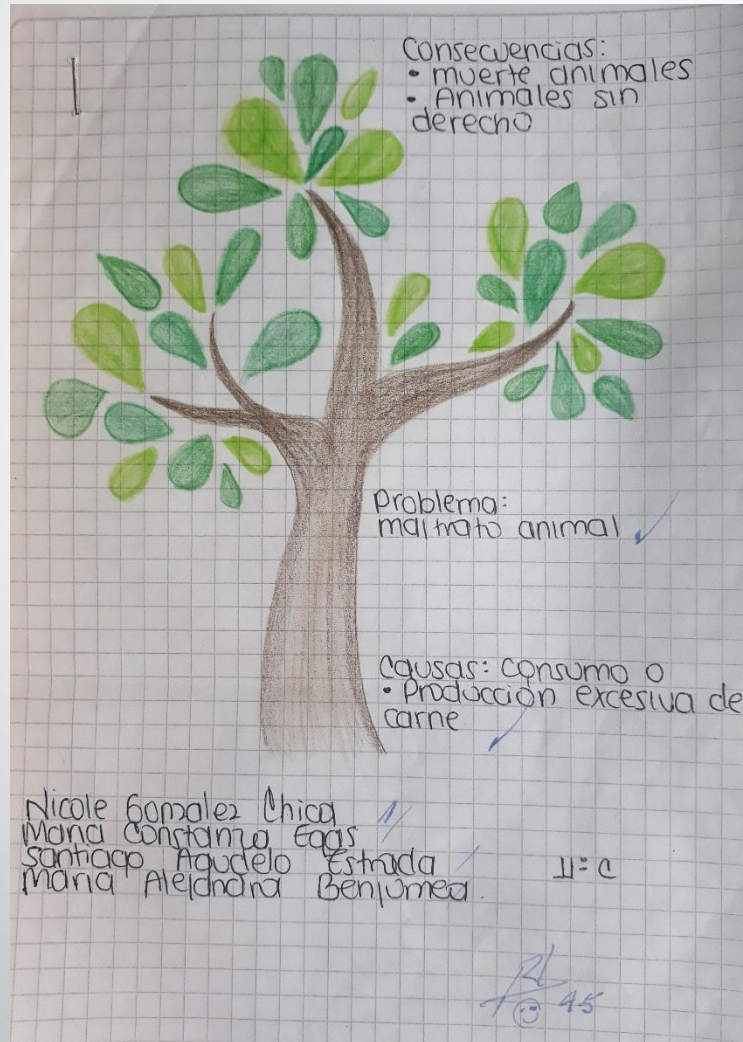 Consecuencias:
• muerte animales
• Animales sin
derecho
Problema:
maltrato animal
Causas: consumo o
• Producción excesiva de
carne
Nicole Gonzalez Chica
Maria Constanza Egas
Santiago Agudelo Estrada
Maria Alejandra Benjumea.
11=C
45